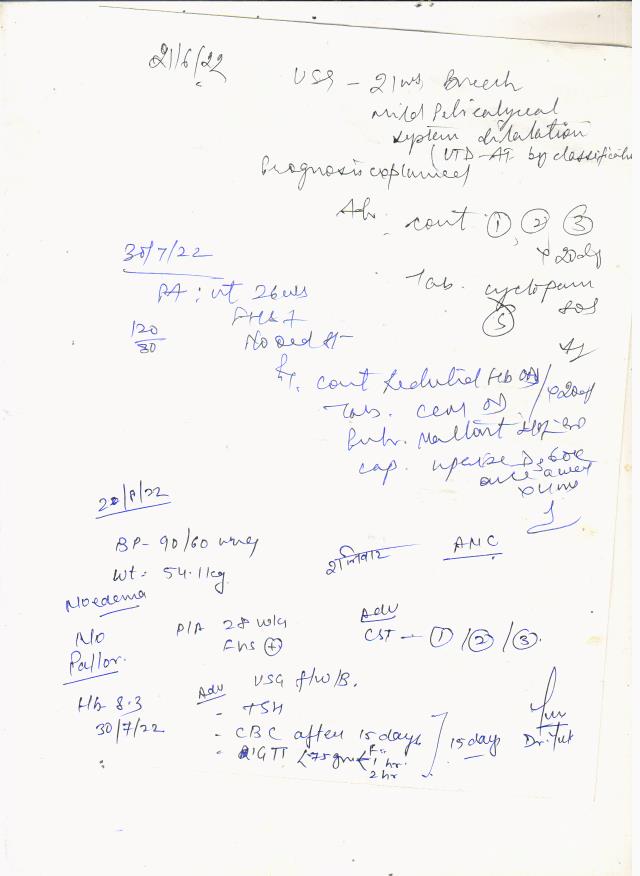 21/6/22
USG - 21 wks Breech
mild Pelvicalyceal
system dilatation
(UTD-A1 by classification
Prognosis explained
Adv. cont ① ② ③
x 20 day
Tab. cyclopam
SOS
30/7/22
PA: ut 26 wks
FHS +
120/80
No oed
Rx. cont OD
Tab. OD
x 20 day
cap. D3 60k
once a week
20/8/22
BP- 90/60 mmHg
Wt = 54.11 kg
शनिवार
ANC
No edema
No
Pallor.
P/A 28 wks
FHS (+)
Adv
CST - ① / ② / ③.
Hb 8.3
30/7/22
Adv USG f/w/B.
- TSH
- CBC after 15 days
- GTT (75 gm F
1 hr.
2 hr
15 days
Dr.